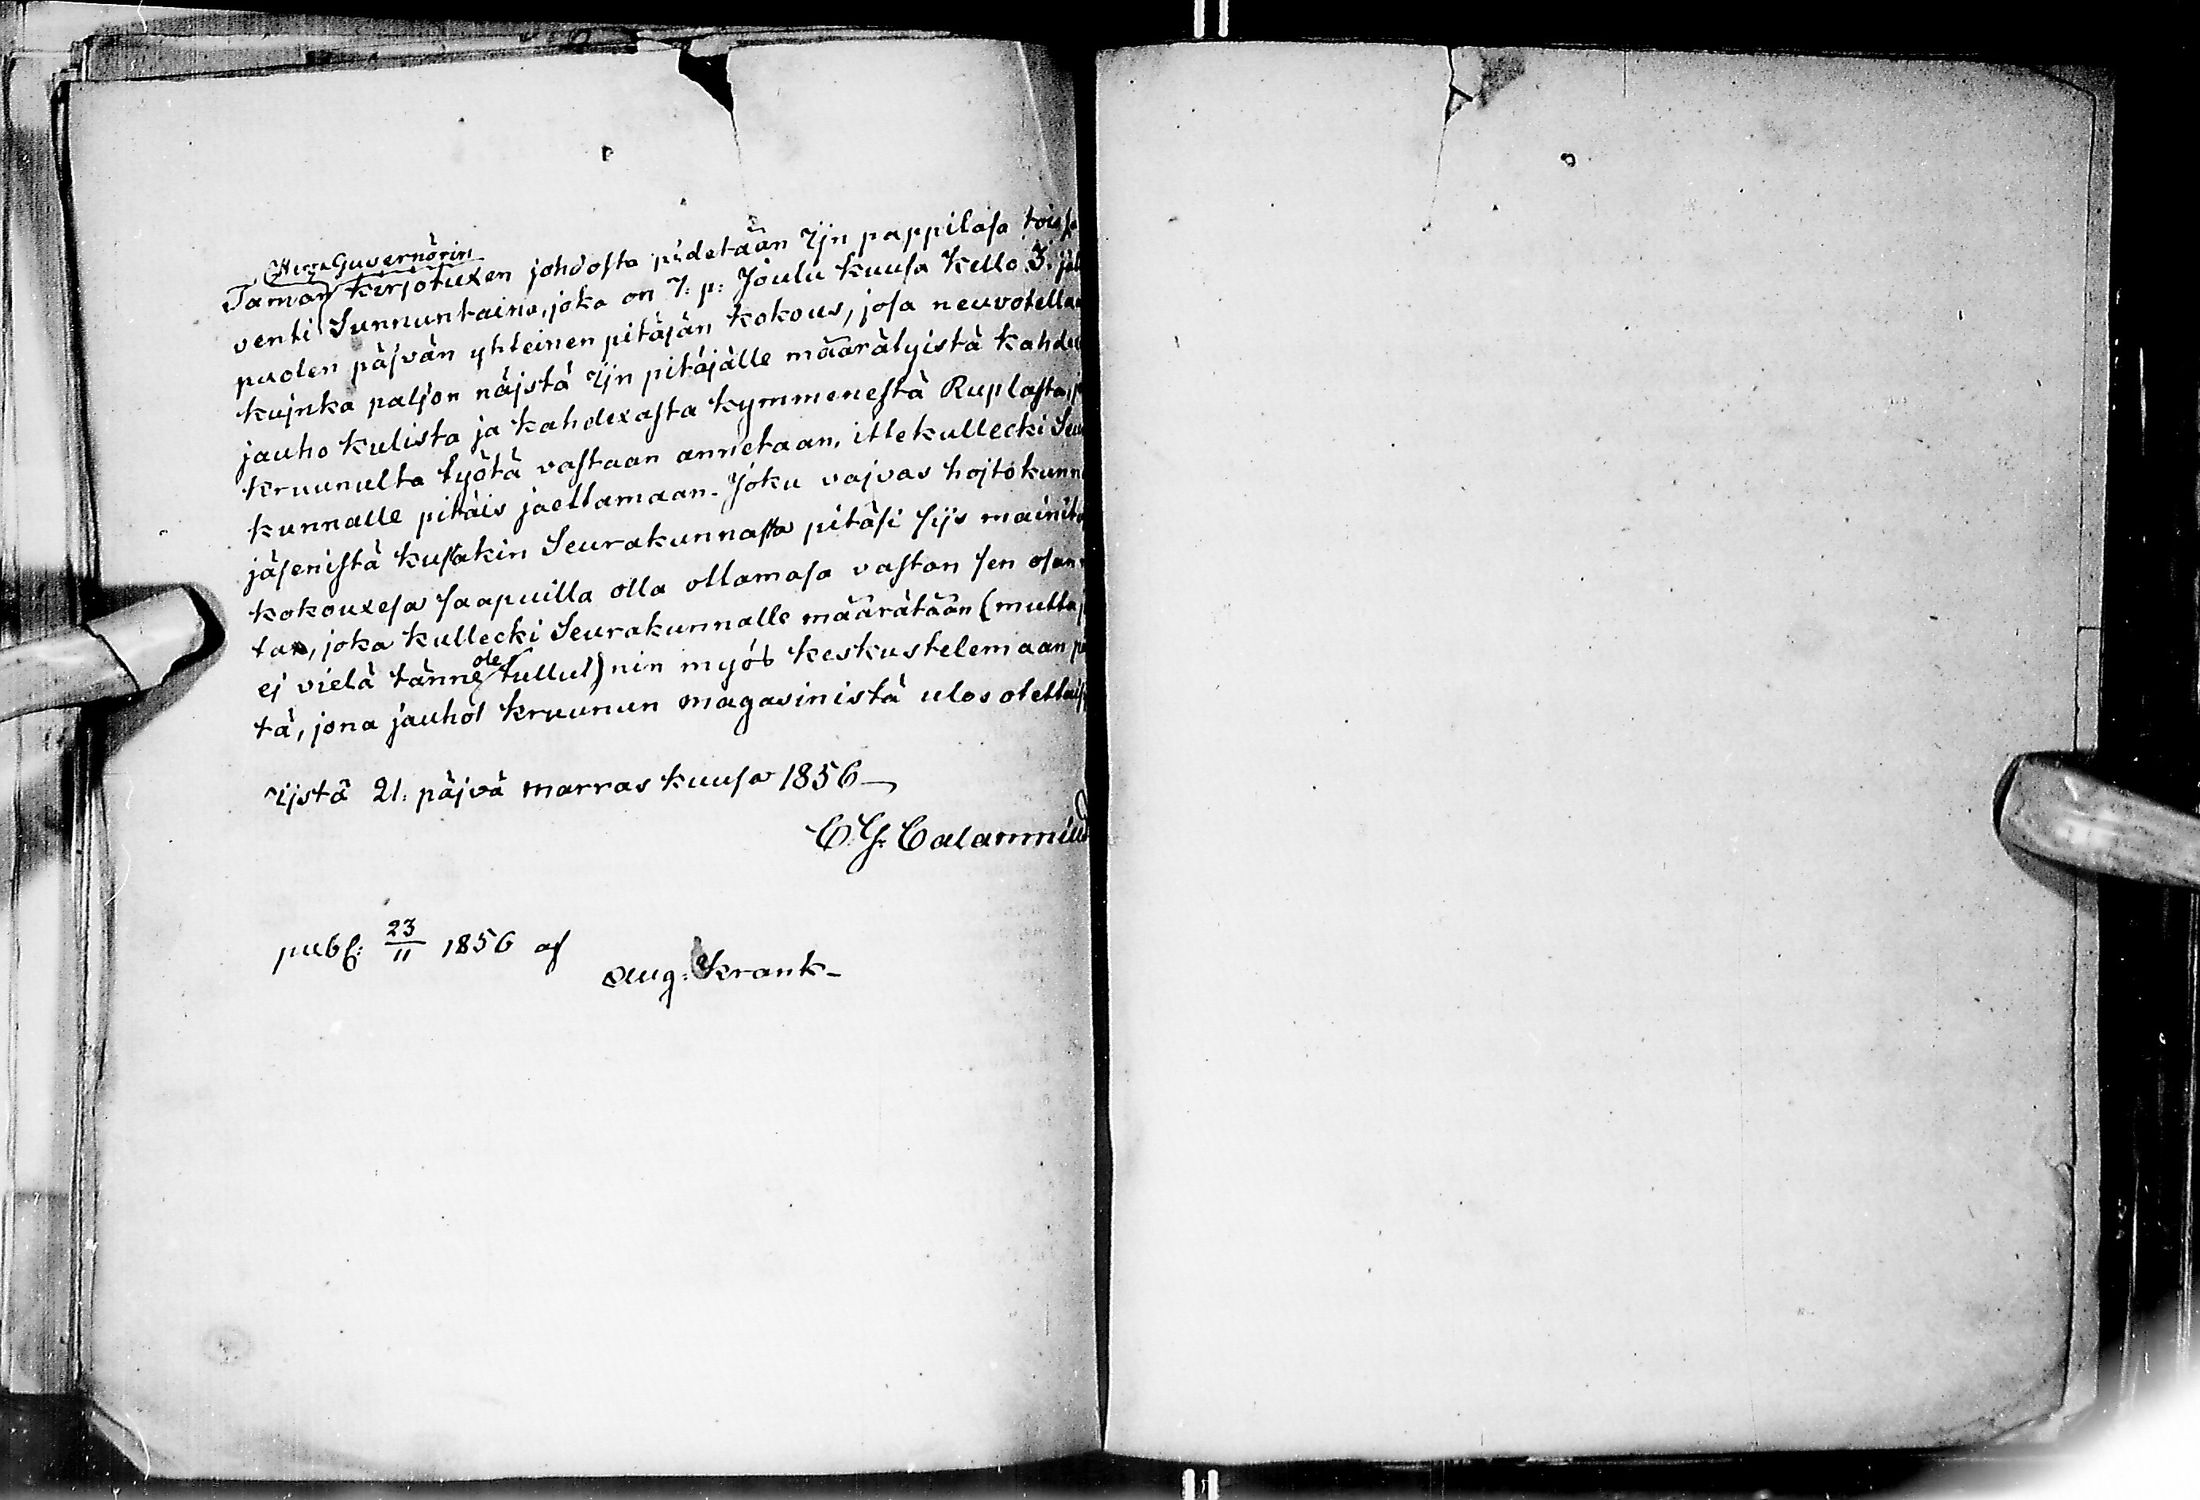 Herra Guvernörin
Tämän kirjotuxen johdosta pidetään Ijn pappilasa toisna
venti Sunnuntaina, joka on 7. p: Joulu kuusa kello 3. jäl
puolen päjvän yhteinen pitäjän kokous, josa neuvotellan
kujnka paljon näjstä Ijn pitäjälle määrätyistä kahdex
jauho kulista ja kahdexasta kymmenestä Ruplasta, j
kruunulta työtä vastaan annetaan, itlekullecki Seu
kunnalle pitäis jaettamaan. Joku vajvas hojtokunn
jäsenistä kussakin Seurakunnassa pitäsi sijs mainitu
kokouxesa saapuilla olla ottamasa vastan sen osan
tan, joka kullecki Seurakunnalle määrätään (mutta j
ej vielä tänne ole tullut) nin myös keskustelemaan pä
tä, jona jauhot kruunun magasinistä ulos otettais
Ijstä 21. päjvä marras kuusa 1856
C. G. Calamnius
publ: 23/11 1856 af
Aug: Krank